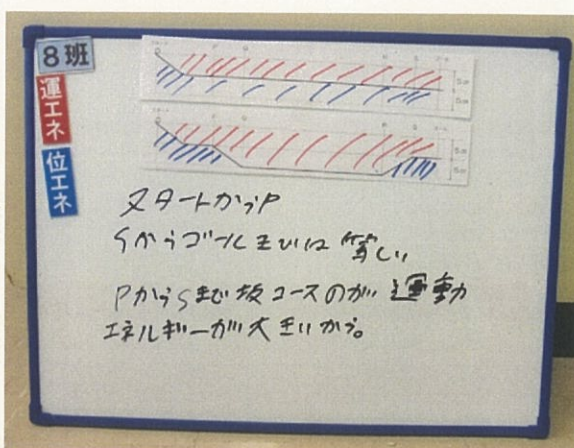 8班
運エネ
位エネ
スタートからP
Sからゴールまでは等しい
PからSまで坂コースのが運動
エネルギーが大きいから。